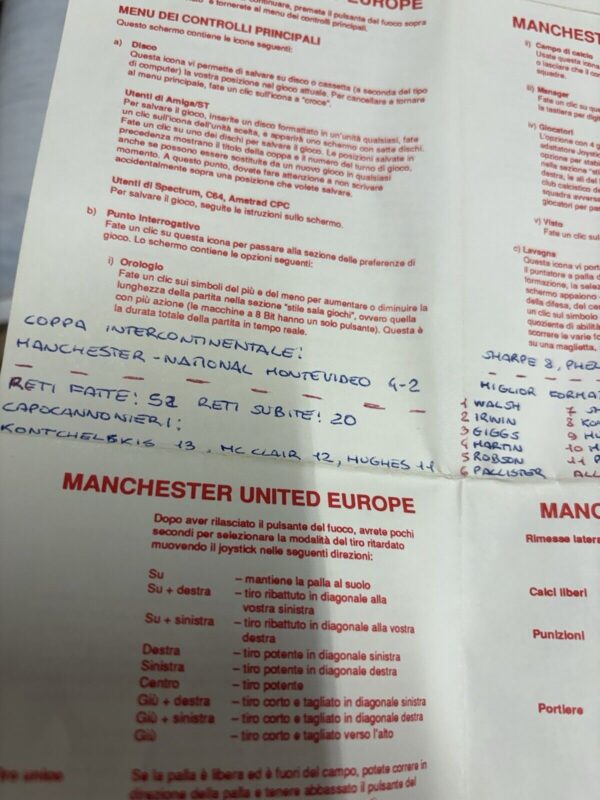 continuare, premete il pulsante del fuoco sopra
e tornerete al menu dei controlli principali.
MENU DEI CONTROLLI PRINCIPALI
Questo schermo contiene le icone seguenti:
a) Disco
Questa icona vi permette di salvare su disco o cassetta (a seconda del tipo
di computer) la vostra posizione nel gioco attuale. Per cancellare e tornare
al menu principale, fate un clic sull'icona a "croce".
Utenti di Amiga/ST
Per salvare il gioco, inserite un disco formattato in un'unità qualsiasi, fate
un clic sull'icona dell'unità scelta, e apparirà uno schermo con sette dischi.
Fate un clic su uno dei dischi per salvare il gioco. Le posizioni salvate in
precedenza mostrano il titolo della coppa e il numero del turno di gioco,
anche se possono essere sostituite da un nuovo gioco in qualsiasi
momento. A questo punto, dovete fare attenzione a non scrivere
accidentalmente sopra una posizione che volete salvare.
Utenti di Spectrum, C64, Amstrad CPC
Per salvare il gioco, seguite le istruzioni sullo schermo.
b) Punto Interrogativo
Fate un clic su questa icona per passare alla sezione delle preferenze di
gioco. Lo schermo contiene le opzioni seguenti:
i) Orologio
Fate un clic sui simboli del più e del meno per aumentare o diminuire la
lunghezza della partita nella sezione "stile sala giochi", ovvero quella
con più azione (le macchine a 8 Bit hanno un solo pulsante). Questa è
la durata totale della partita in tempo reale.
COPPA INTERCONTINENTALE:
MANCHESTER - NATIONAL MONTEVIDEO 4-2
RETI FATTE: 52 RETI SUBITE: 20
CAPOCANNONIERI:
KONTCHELSKIS 13, MC CLAIR 12, HUGHES 11
MANCHESTER UNITED EUROPE
Dopo aver rilasciato il pulsante del fuoco, avrete pochi
secondi per selezionare la modalità del tiro ritardato
muovendo il joystick nelle seguenti direzioni:
Su – mantiene la palla al suolo
Su + destra – tiro ribattuto in diagonale alla
vostra sinistra
Su + sinistra – tiro ribattuto in diagonale alla vostra
destra
Destra – tiro potente in diagonale sinistra
Sinistra – tiro potente in diagonale destra
Centro – tiro potente
Giù + destra – tiro corto e tagliato in diagonale sinistra
Giù + sinistra – tiro corto e tagliato in diagonale destra
Giù – tiro corto e tagliato verso l'alto
Se la palla è libera ed è fuori del campo, potete correre in
direzione della palla e tenere abbassato il pulsante del
MANCHESTER
ii) Campo di calcio
Usate questa
o lasciare che il
squadra.
iii) Manager
Fate un clic su
la tastiera per
iv) Giocatori
L'opzione con 4
adattatore
opzione per
nella sezione
destra, le
club calcistico
squadra
giocatori per
v) Viste
Fate un clic
c) Lavagna
Questa icona vi
il puntatore a palla
formazione, la
schermo appaiono
della difesa, del
un clic sul simbolo
quoziente di
scorrere le varie
su una maglietta,
SHARPE 8,
MIGLIOR
1 WALSH 7
2 IRWIN 8
3 GIGGS 9
4 MARTIN 10
5 ROBSON 11
6 PALLISTER
Rimesse
Calci liberi
Punizioni
Portiere